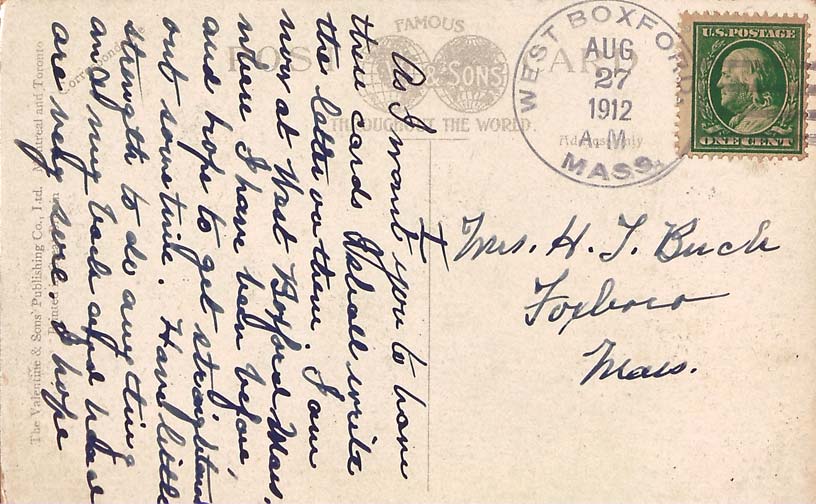 FAMOUS
POST CARD
& SONS
THROUGHOUT THE WORLD.
Correspondence
Address Only
WEST BOXFORD,
AUG
27
1912
A.M.
MASS.
U.S. POSTAGE
ONE CENT
Mrs. H. T. Buck
Foxboro
Mass.
As I want you to have
these cards I shall write
the letter on them. I am
now at West Boxford Mass.
where I have been before,
and hope to get straightened
out sometime. Have little
strength to do anything
and my back and head
are very sore. I hope
The Valentine & Sons' Publishing Co., Ltd. Montreal and Toronto
Printed in